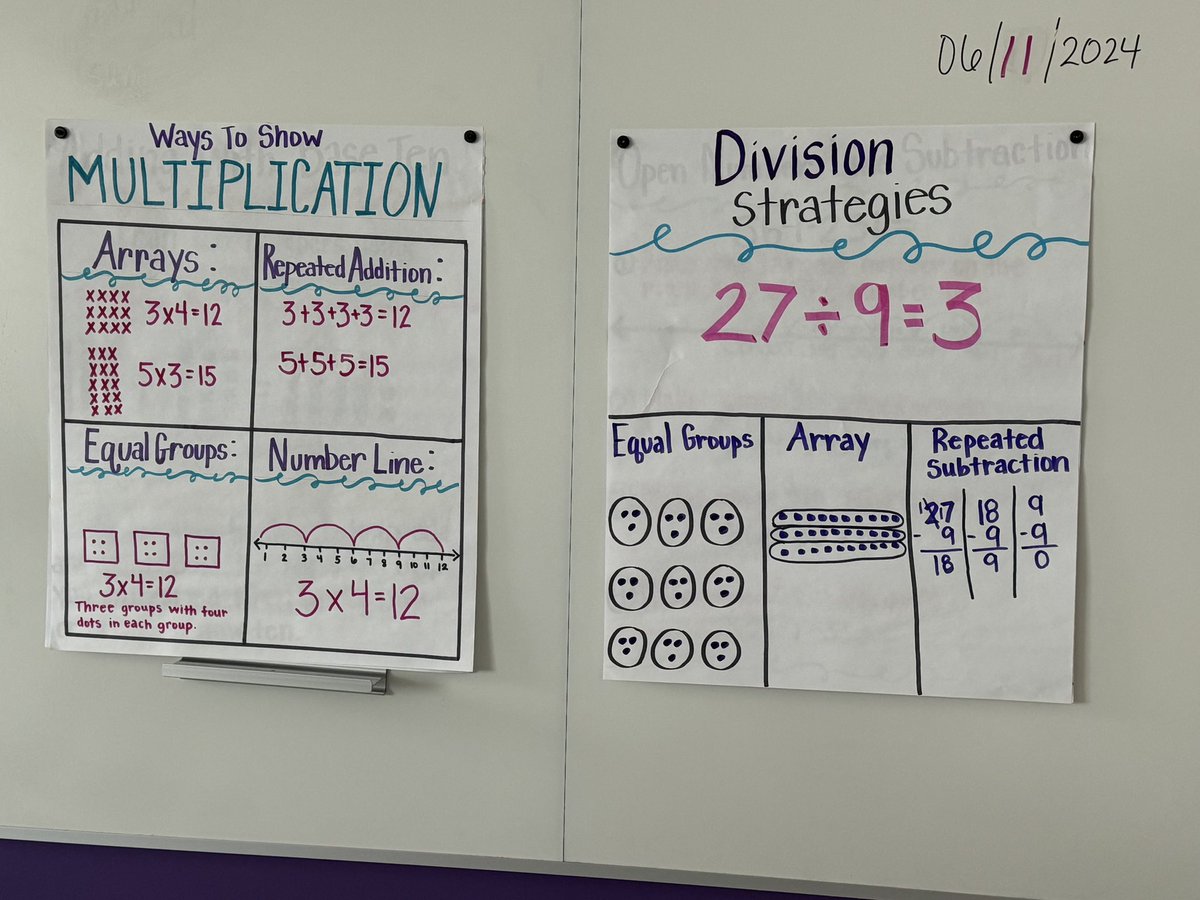 06/11/2024
Ways To Show
MULTIPLICATION
Arrays:
XXXX
XXXX
XXXX
3x4=12
XXX
XXX
XXX
XXX
XXX
5x3=15
Repeated Addition:
3+3+3+3=12
5+5+5=15
Equal Groups:
3x4=12
Three groups with four
dots in each group.
Number Line:
1 2 3 4 5 6 7 8 9 10 11 12
3x4=12
Division
Strategies
27÷9=3
Equal Groups
Array
Repeated
Subtraction
27
- 9
18
18
- 9
9
9
-9
0